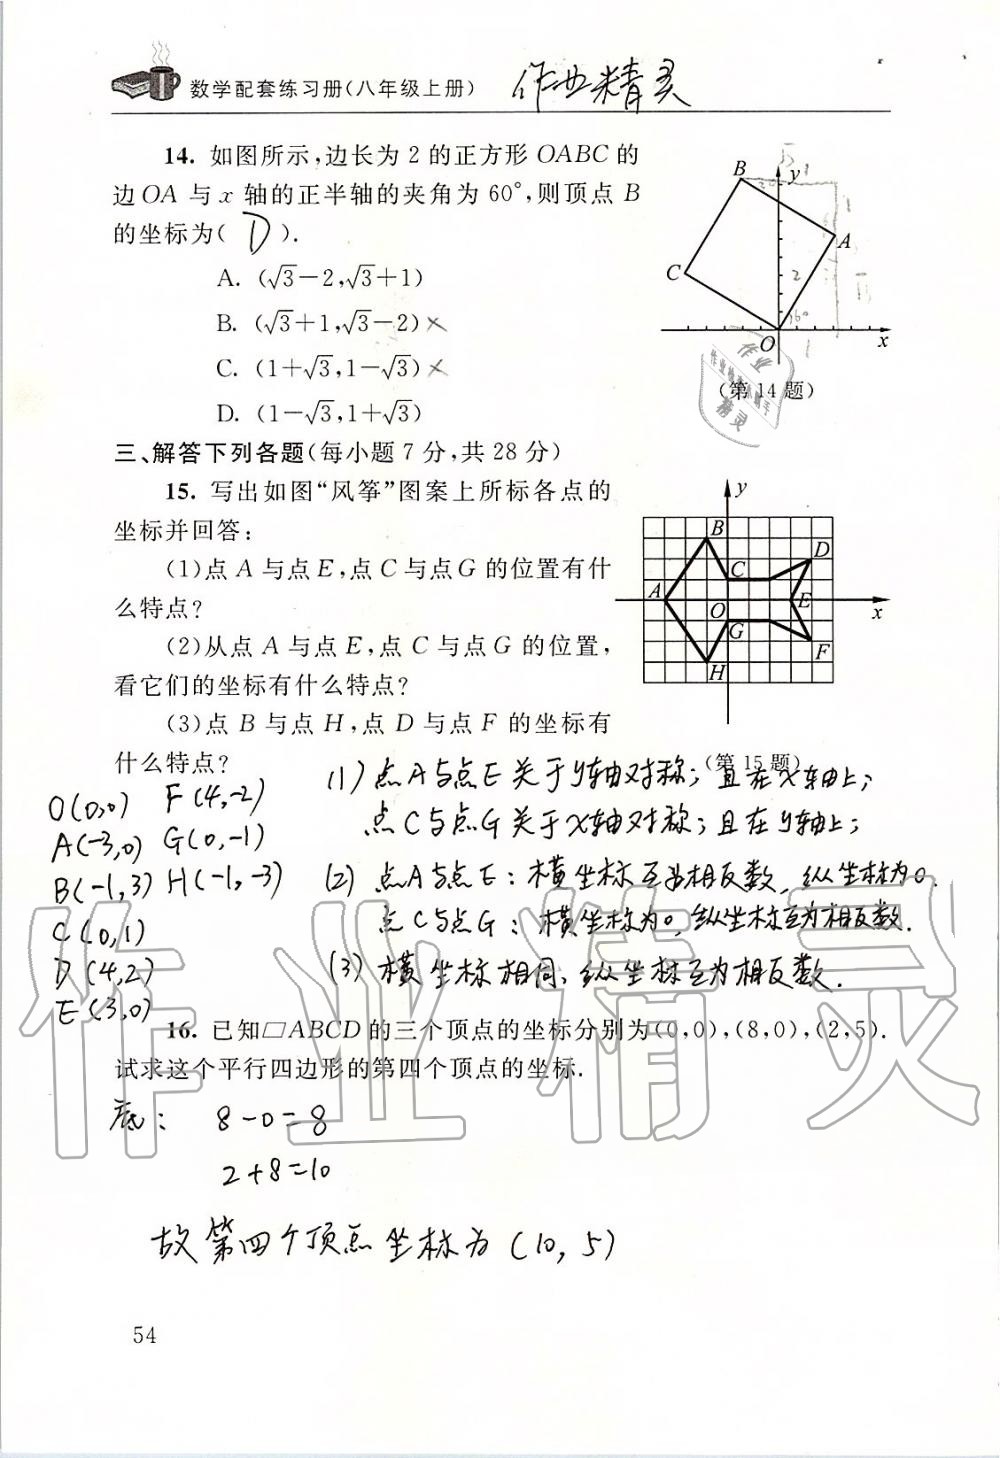 数学配套练习册(八年级上册) 作业精灵
14. 如图所示,边长为 2 的正方形 OABC 的
边 OA 与 x 轴的正半轴的夹角为 60°,则顶点 B
的坐标为( D ).
A. (√3-2,√3+1)
B. (√3+1,√3-2)×
C. (1+√3,1-√3)×
D. (1-√3,1+√3)
B
y
A
C
2
60°
O
x
(第 14 题)
作业
精灵
三、解答下列各题(每小题 7 分,共 28 分)
15. 写出如图“风筝”图案上所标各点的
坐标并回答:
(1)点 A 与点 E,点 C 与点 G 的位置有什
么特点?
(2)从点 A 与点 E,点 C 与点 G 的位置,
看它们的坐标有什么特点?
(3)点 B 与点 H,点 D 与点 F 的坐标有
什么特点?
y
B
D
C
A
O
E
x
G
F
H
(第 15 题)
O(0,0) F(4,-2)
A(-3,0) G(0,-1)
B(-1,3) H(-1,-3)
C(0,1)
D(4,2)
E(3,0)
(1) 点A与点E关于y轴对称;且在x轴上;
点C与点G关于x轴对称;且在y轴上;
(2) 点A与点E:横坐标互为相反数,纵坐标为0.
点C与点G:横坐标为0,纵坐标互为相反数.
(3) 横坐标相同,纵坐标互为相反数.
16. 已知▱ABCD 的三个顶点的坐标分别为(0,0),(8,0),(2,5).
试求这个平行四边形的第四个顶点的坐标.
底: 8-0=8
2+8=10
故第四个顶点坐标为(10,5)
作业精灵
54